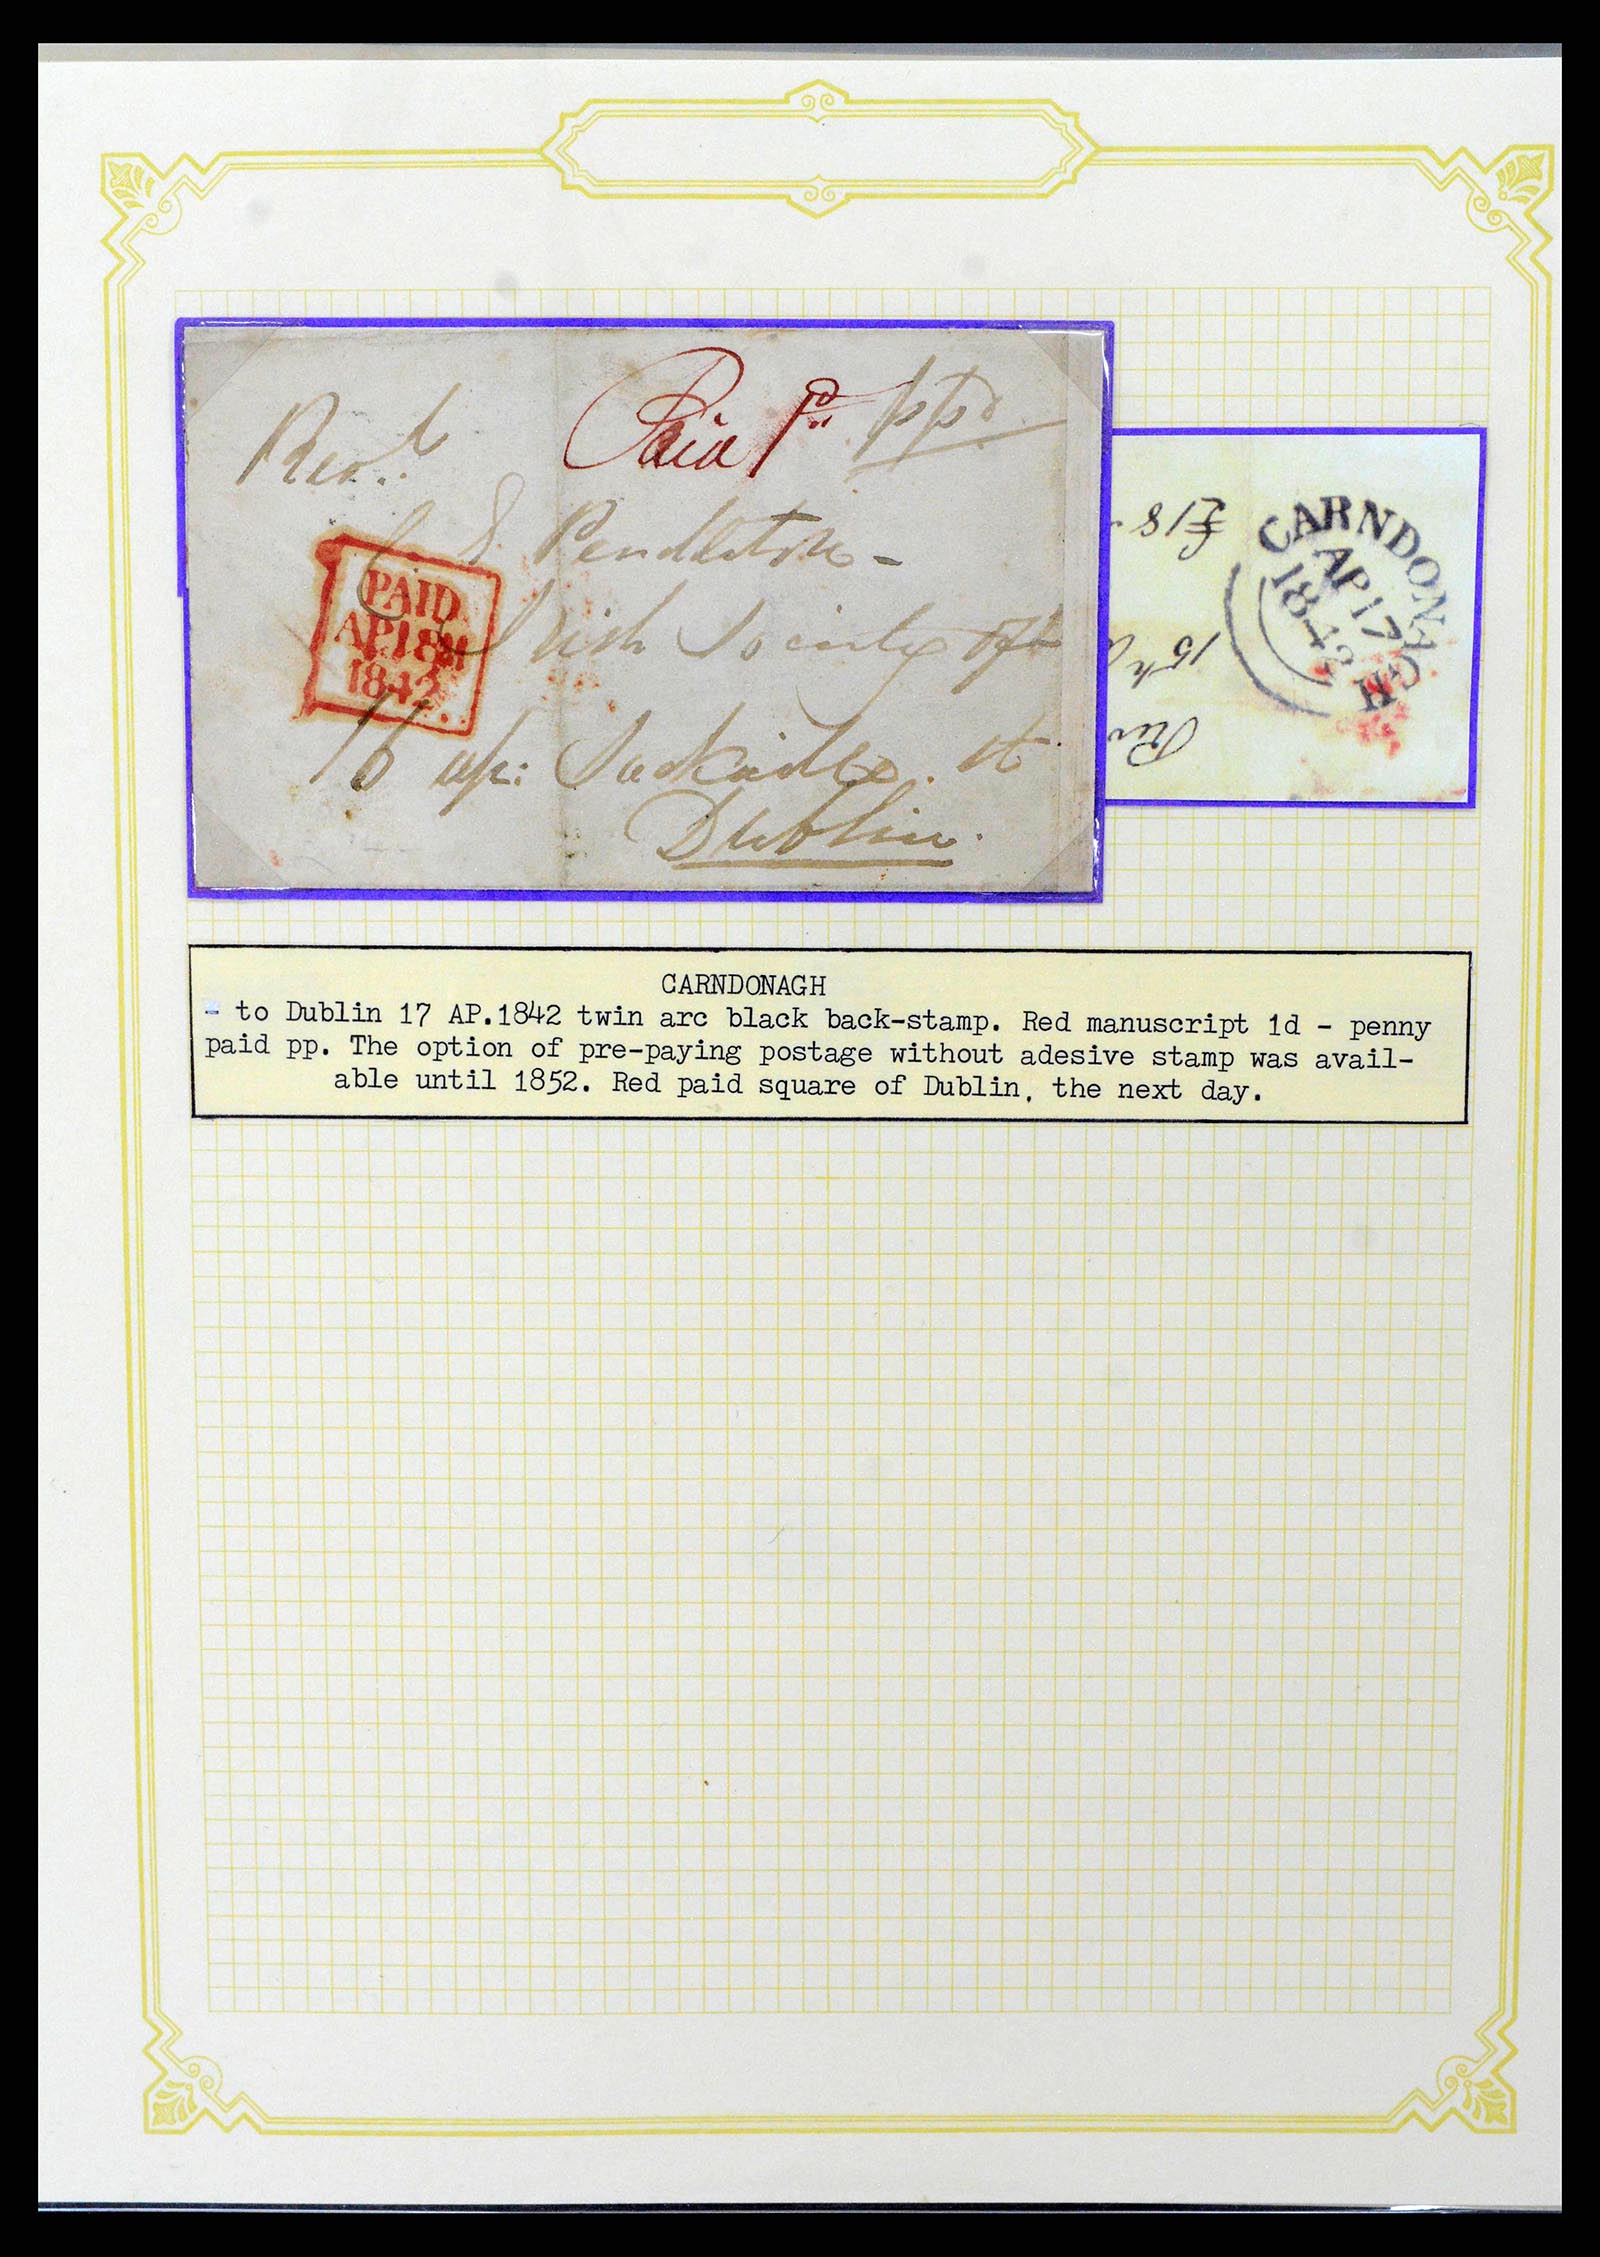 Revd. Paid 1d. ppd
Pendleton -
Irish Society Off
16 up: Sackville. st
Dublin.
PAID
AP 18
1842
£18
15th
CARNDONAGH
AP 17
1842
CARNDONAGH
- to Dublin 17 AP.1842 twin arc black back-stamp. Red manuscript 1d - penny
paid pp. The option of pre-paying postage without adesive stamp was avail-
able until 1852. Red paid square of Dublin, the next day.